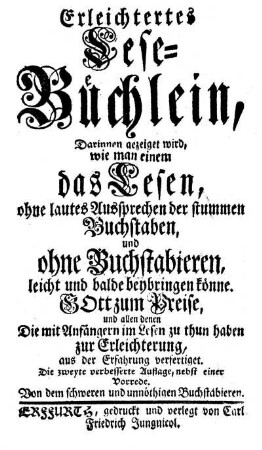 Erleichtertes
Lese-
Büchlein,
Darinnen gezeiget wird,
wie man einem
das Lesen,
ohne lautes Aussprechen der stummen
Buchstaben,
und
ohne Buchstabieren,
leicht und balde beybringen könne.
GOtt zum Preise,
und allen denen
Die mit Anfängern im Lesen zu thun haben
zur Erleichterung,
aus der Erfahrung verfertiget.
Die zweyte verbesserte Auflage, nebst einer
Vorrede.
Von dem schweren und unnöthigen Buchstabieren.
ERFFURTH, gedruckt und verlegt von Carl
Friedrich Jungnicol.